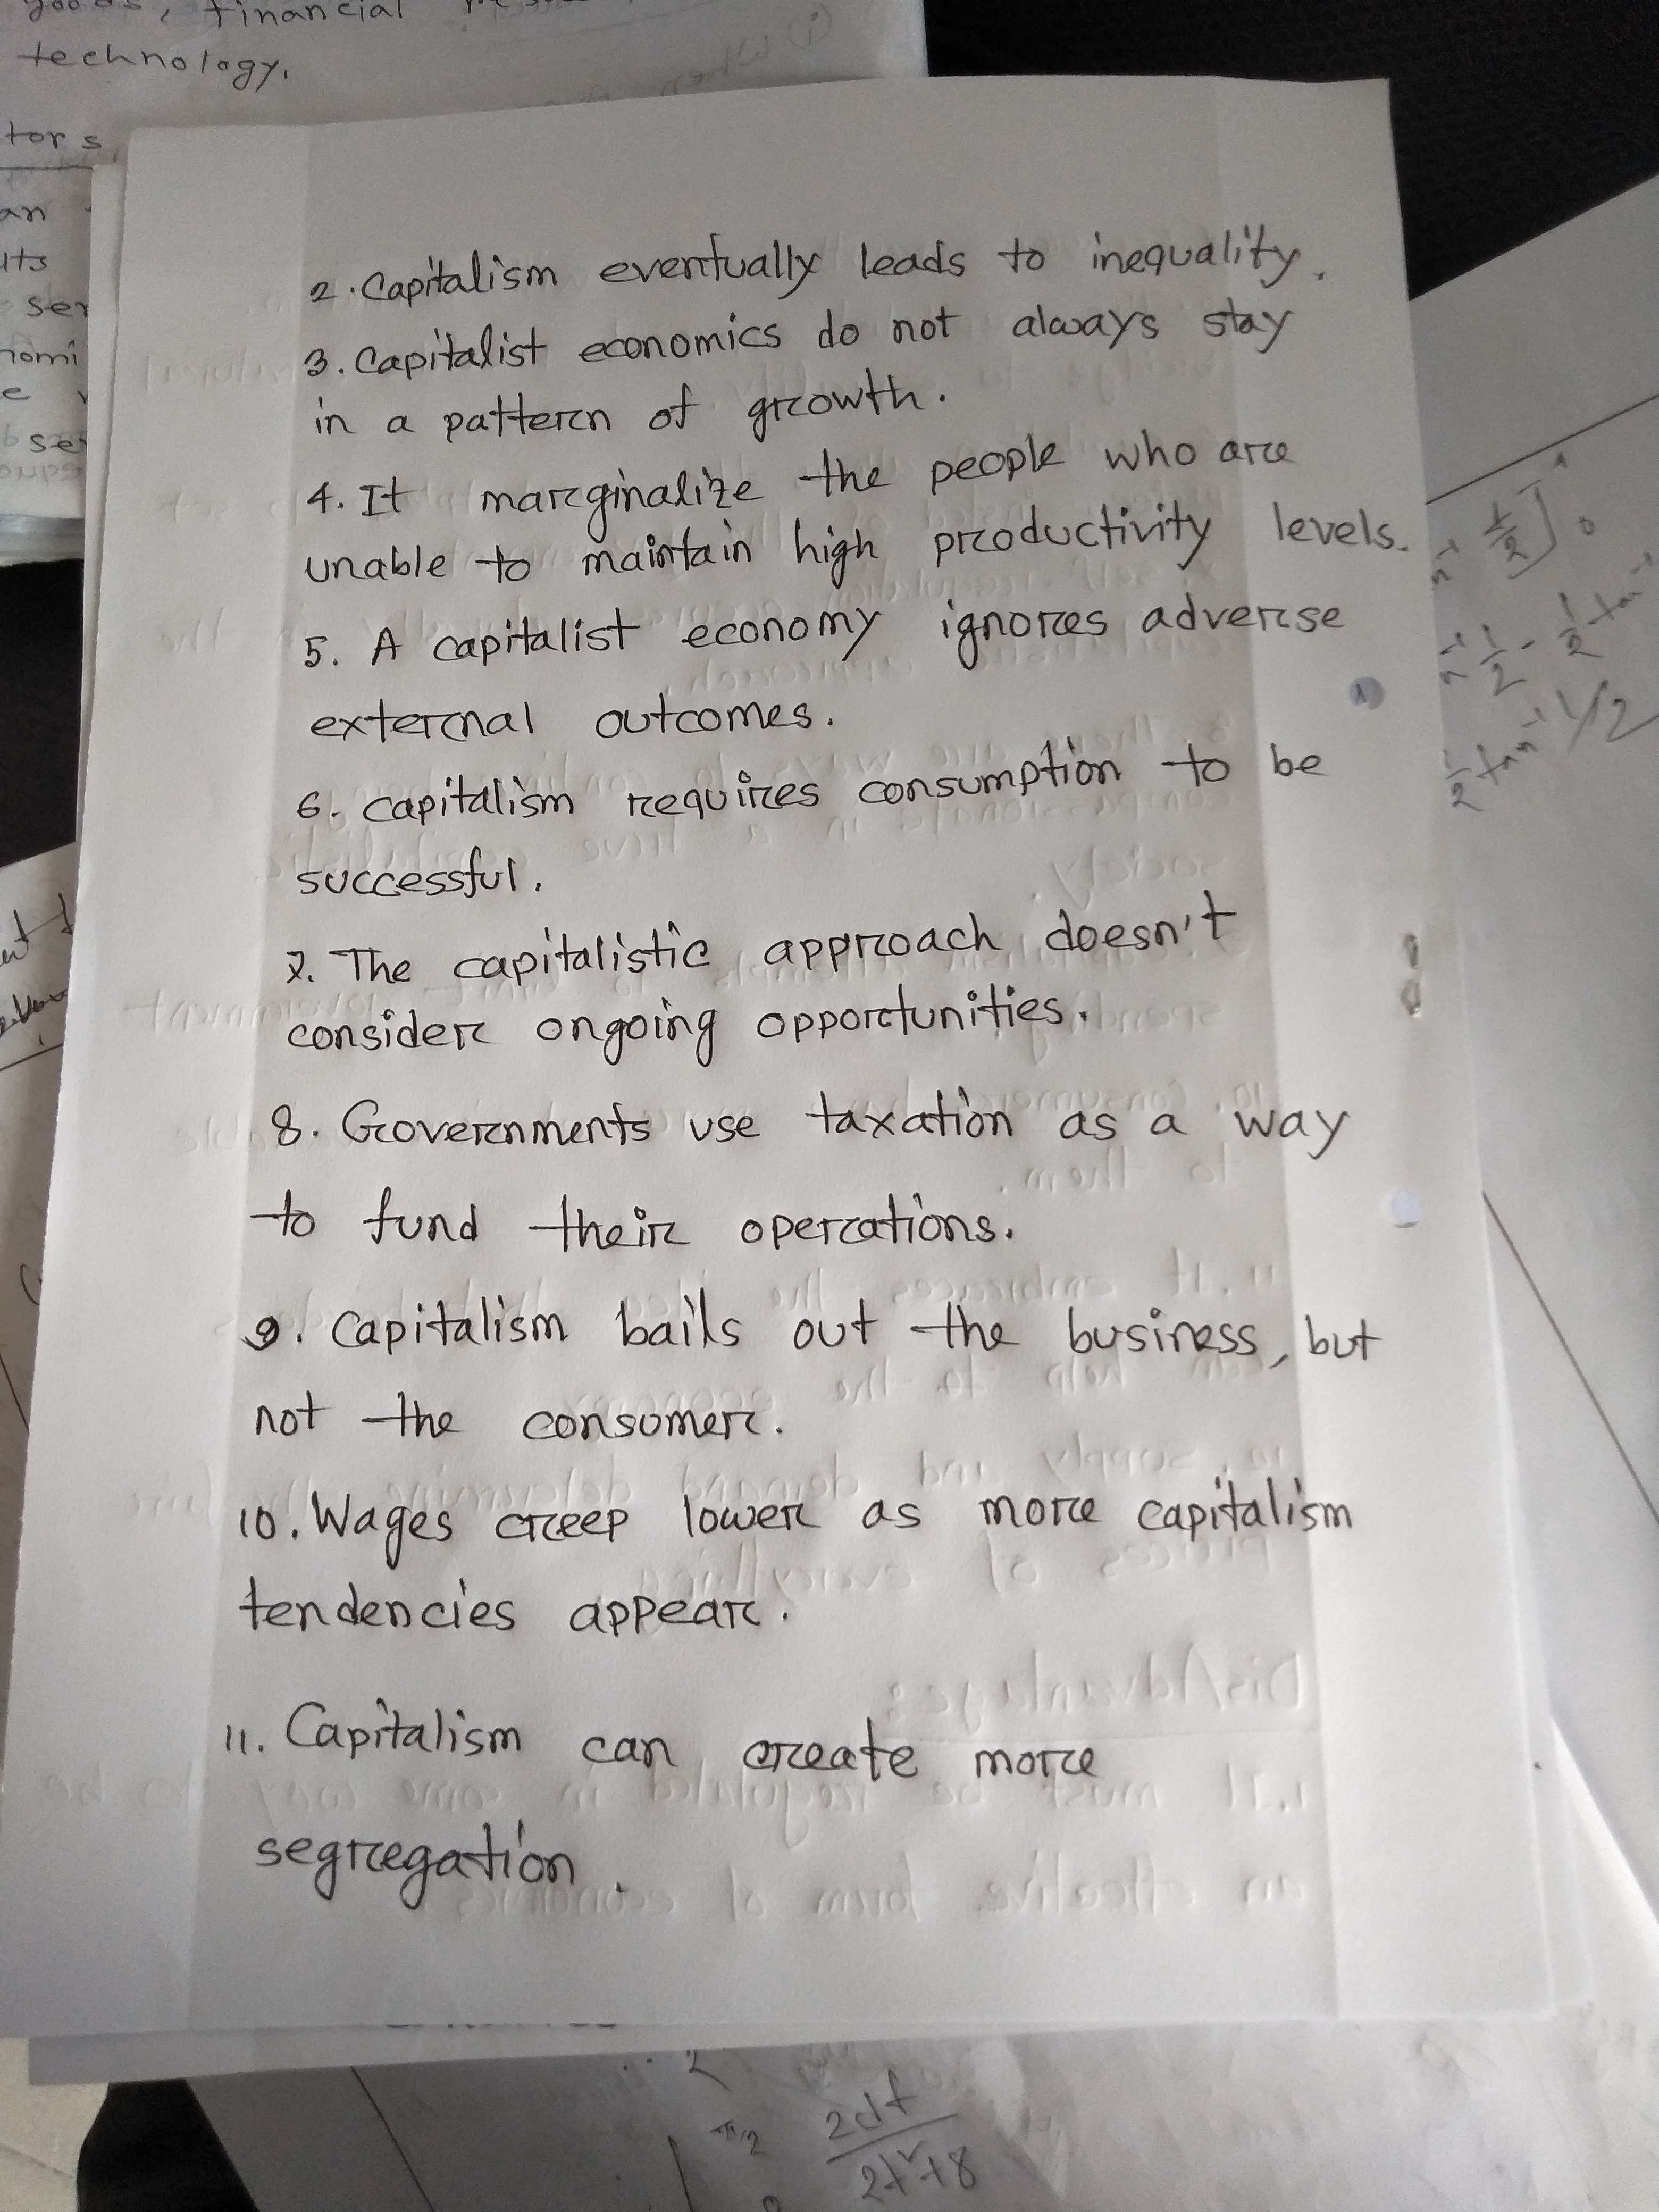 financial
technology.
2. Capitalism eventually leads to inequality.
3. Capitalist economics do not always stay
in a pattern of growth.
4. It marginalize the people who are
unable to maintain high productivity levels.
5. A capitalist economy ignores adverse
external outcomes.
6. Capitalism requires consumption to be
successful.
7. The capitalistic approach doesn't
consider ongoing opportunities.
8. Governments use taxation as a way
to fund their operations.
9. Capitalism bails out the business, but
not the consumer.
10. Wages creep lower as more capitalism
tendencies appear.
11. Capitalism can create more
segregation.